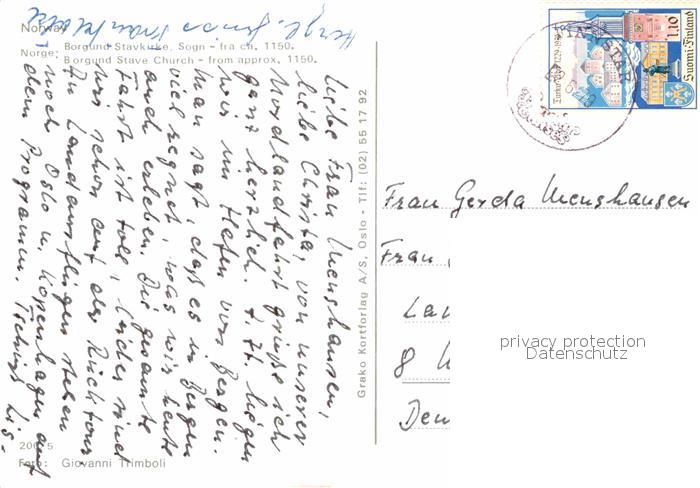 Norway
Norge: Borgund Stavkirke, Sogn - fra ch. 1150.
Borgund Stave Church - from approx. 1150.
Liebe Frau Menshausen,
liebe Christa, von unserer
Nordlandfahrt grüße ich
ganz herzlich. Z. Zt. liegen
wir im Hafen von Bergen.
Man sagt, daß es in Bergen
viel regnet, was wir heute
auch erleben. Die gesamte
Fahrt ist toll, leider sind
wir schon auf der Rücktour.
An Landausflügen stehen
noch Oslo u. Kopenhagen auf
dem Programm. Tschüß Lis-
Herzl.
2005
Foto: Giovanni Trimboli
Grako Kortforlag A/S, Oslo - Tlf: (02) 55 17 92
1.10
Suomi-Finland
Turku Åbo 1229-1979
Frau Gerda Menshausen
Frau
8
privacy protection
Datenschutz